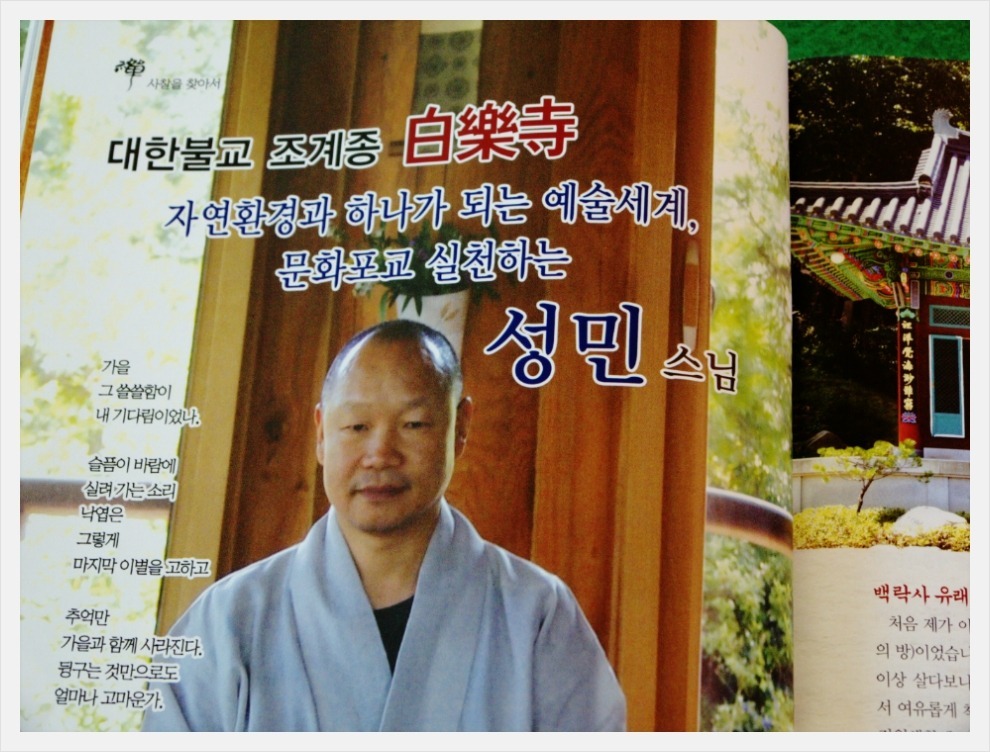 禪 사찰을 찾아서
대한불교 조계종 白樂寺
자연환경과 하나가 되는 예술세계,
문화포교 실천하는
성민 스님
가을
그 쓸쓸함이
내 기다림이었나.
슬픔이 바람에
실려 가는 소리
낙엽은
그렇게
마지막 이별을 고하고
추억만
가을과 함께 사라진다.
뒹구는 것만으로도
얼마나 고마운가.
백락사 유래
처음 제가 이
의 방)이었습니
이상 살다보니
서 여유롭게